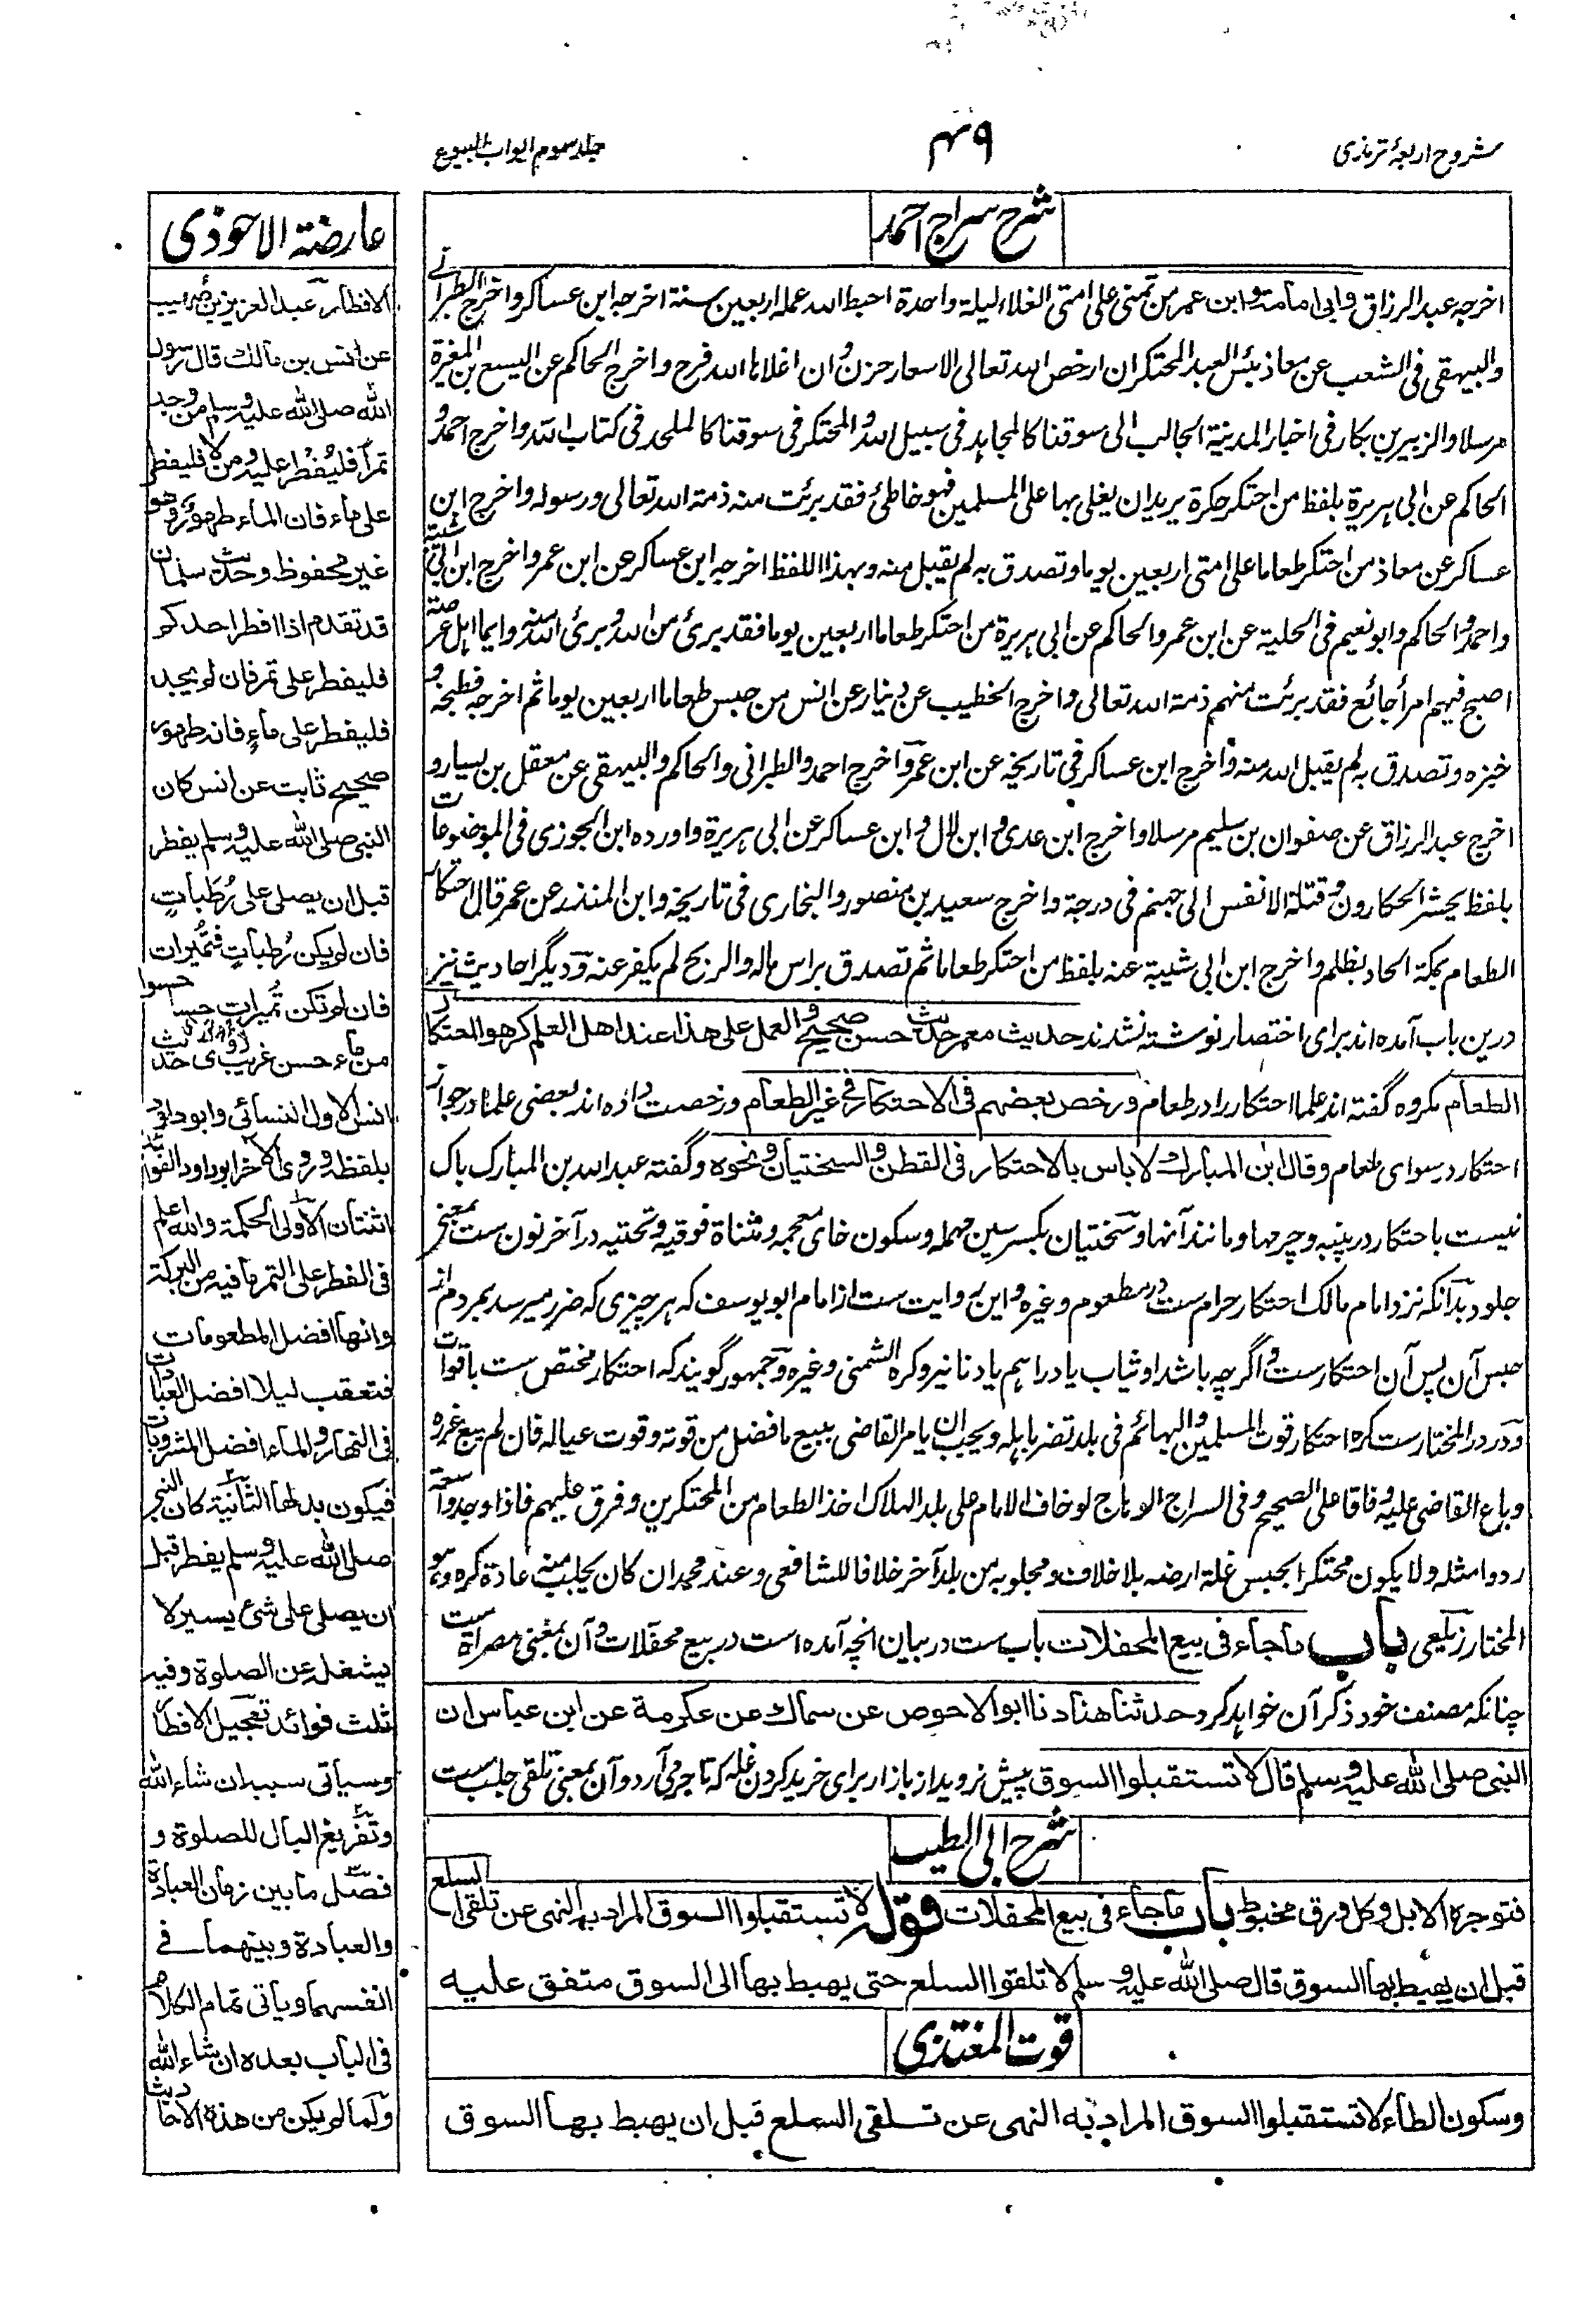 شروح اربعهٔ ترمذی
۴۹
جلد سوم ابواب البیوع
شرح سراج احمد
اخرجه عبد الرزاق وابی امامة وابن عمر من تمنی علی امتی الغلاء لیلة واحدة احبط الله عمله اربعین سنة اخرجه ابن عساکر واخرج الطبرانے
والبیهقی فی الشعب عن معاذ بئس العبد المحتکر ان ارخص الله تعالی الاسعار حزن وان اغلاها الله فرح واخرج الحاکم عن الیسع بن المغیرة
مرسلا والزبیر بن بکار فی اخبار المدینة الجالب الی سوقنا کالمجاهد فی سبیل الله والمحتکر فی سوقنا کالملحد فی کتاب الله واخرج احمد و
الحاکم عن ابی هریرة بلفظ من احتکر حکرة یرید ان یغلی بها علی المسلمین فهو خاطئ فقد برئت منه ذمة الله تعالی ورسوله واخرج ابن
عساکر عن معاذ من احتکر طعاما علی امتی اربعین یوما وتصدق به لم یقبل منه وبهذا اللفظ اخرجه ابن عساکر عن ابن عمر واخرج ابن ابی شیبة
واحمد والحاکم وابو نعیم فی الحلیة عن ابن عمر والحاکم عن ابی هریرة من احتکر طعاما اربعین یوما فقد برئ من الله وبرئ الله منه وایما اهل عرصة
اصبح فیهم امرأ جائع فقد برئت منهم ذمة الله تعالی واخرج الخطیب عن دینار عن انس من حبس طعاما اربعین یوما ثم اخرجه فطبخه و
خبزه وتصدق به لم یقبل الله منه واخرج ابن عساکر فی تاریخه عن ابن عمر واخرج احمد والطبرانی والحاکم والبیهقی عن معقل بن یسار و
اخرج عبد الرزاق عن صفوان بن سلیم مرسلا واخرج ابن عدی وابن لال وابن عساکر عن ابی هریرة واورده ابن الجوزی فی الموضوعات
بلفظ یحشر الحکارون وقتلة الانفس الی جهنم فی درجة واخرج سعید بن منصور والبخاری فی تاریخه وابن المنذر عن عمر قال احتکار
الطعام بمکة الحاد بظلم واخرج ابن ابی شیبة عنه بلفظ من احتکر طعاما ثم تصدق براس ماله والربح لم یکفر عنه ودیگر احادیث نیز
درین باب آمده اند برای اختصار نوشته نشدند حدیث معمر حدیث حسن صحیح والعمل علی هذا عند اهل العلم کرهوا احتکار
الطعام مکروه گفته اند علما احتکار را در طعام ورخص بعضهم فی الاحتکار فی غیر الطعام ورخصت داده اند بعضی علما در جواز
احتکار در سوای طعام وقال ابن المبارك لا باس بالاحتکار فی القطن والسختیان ونحوه وگفته عبد الله بن المبارک باک
نیست باحتکار در پنبه وچرمها ومانند آنها وسختیان بکسر سین مهمله وسکون خای معجمه ومثناة فوقیه وتحتیه در آخر نون ست بمعنی
جلود بدانکه نزد امام مالک احتکار حرام ست در مطعوم وغیره واین روایت ست از امام ابو یوسف که هر چیزی که ضرر میرسد بمردم از
حبس آن پس آن احتکار ست واگرچه باشد او ثیاب یا دراهم یا دنانیر وکره الشمنی وغیره وجمهور گویند که احتکار مختص ست باقوات
ودر در المختار ست کره احتکار قوت المسلمین والبهائم فی بلد تضر باهله ویجب ان یامر القاضی ببیع ما فضل من قوته وقوت عیاله فان لم یبع عزره
وباع القاضی علیه وفاقا علی الصحیح وفی السراج الوهاج لو خاف الامام علی بلد الهلاک اخذ الطعام من المحتکرین وفرق علیهم فاذا وجدوا سعة
ردوا مثله ولا یکون محتکرا بحبس غلة ارضه بلا خلاف ومجلوبه من بلد آخر خلافا للشافعی وعند محمد ان کان یجلب منه عادة کره وهو
المختار زیلعی باب ما جاء فی بیع المحفلات باب ست در بیان انچه آمده است در بیع محفلات وآن بمعنی مصراة ست
چنانکه مصنف خود ذکر آن خواهد کرد حدثنا هناد نا ابو الاحوص عن سماك عن عکرمة عن ابن عباس ان
النبی صلی الله علیه وسلم قال لا تستقبلوا السوق پیش نروید از بازار برای خرید کردن غله که تاجر می آرد وآن بمعنی تلقی جلب ست
شرح ابی الطیب
فتوجره الابل وکل ورق مخبوط باب ما جاء فی بیع المحفلات قوله لا تستقبلوا السوق المراد به النهی عن تلقی السلع
قبل ان یهبط بها السوق قال صلی الله علیه وسلم لا تلقوا السلع حتی یهبط بها الی السوق متفق علیه
قوت المغتذی
وسکون الطاء لا تستقبلوا السوق المراد به النهی عن تلقی السلع قبل ان یهبط بها السوق
عارضة الاحوذی
الافطار عبد العزیز بن صهیب
عن انس بن مالك قال رسول
الله صلی الله علیه وسلم من وجد
تمرا فلیفطر علیه ومن لا فلیفطر
علی ماء فان الماء طهور وهو
غیر محفوظ وحدیث سلمان
قد تقدم اذا افطر احدکم
فلیفطر علی تمر فان لم یجد
فلیفطر علی ماء فانه طهور
صحیح ثابت عن انس کان
النبی صلی الله علیه وسلم یفطر
قبل ان یصلی علی رُطَباتٍ
فان لم یکن رُطباتٍ فتُمیرات
فان لم تکن تُمیرات حسا حسوات
من ماء حسن غریب روی حدیث
انس الاول النسائی وابو داود
بلفظه وروی الآخر ابو داود الفوائد
اثنتان الاولی الحکمة والله اعلم
فی الفطر علی التمر ما فیه من البرکة
وانها افضل المطعومات
فتعقب لیلا افضل العبادات
فی النهار والماء افضل المشروبات
فیکون بدلها الثانیة کان النبی
صلی الله علیه وسلم یفطر قبل
ان یصلی علی شئ یسیر لا
یشغله عن الصلوة وفیه
ثلث فوائد تعجیل الافطار
وسیأتی سببه ان شاء الله
وتفریغ البال للصلوة و
فصل ما بین زمان العبادة
والعبادة وبینهما فی
انفسهما ویأتی تمام الکلام
فی الباب بعده ان شاء الله
ولما لم یکن من هذه الاحادیث